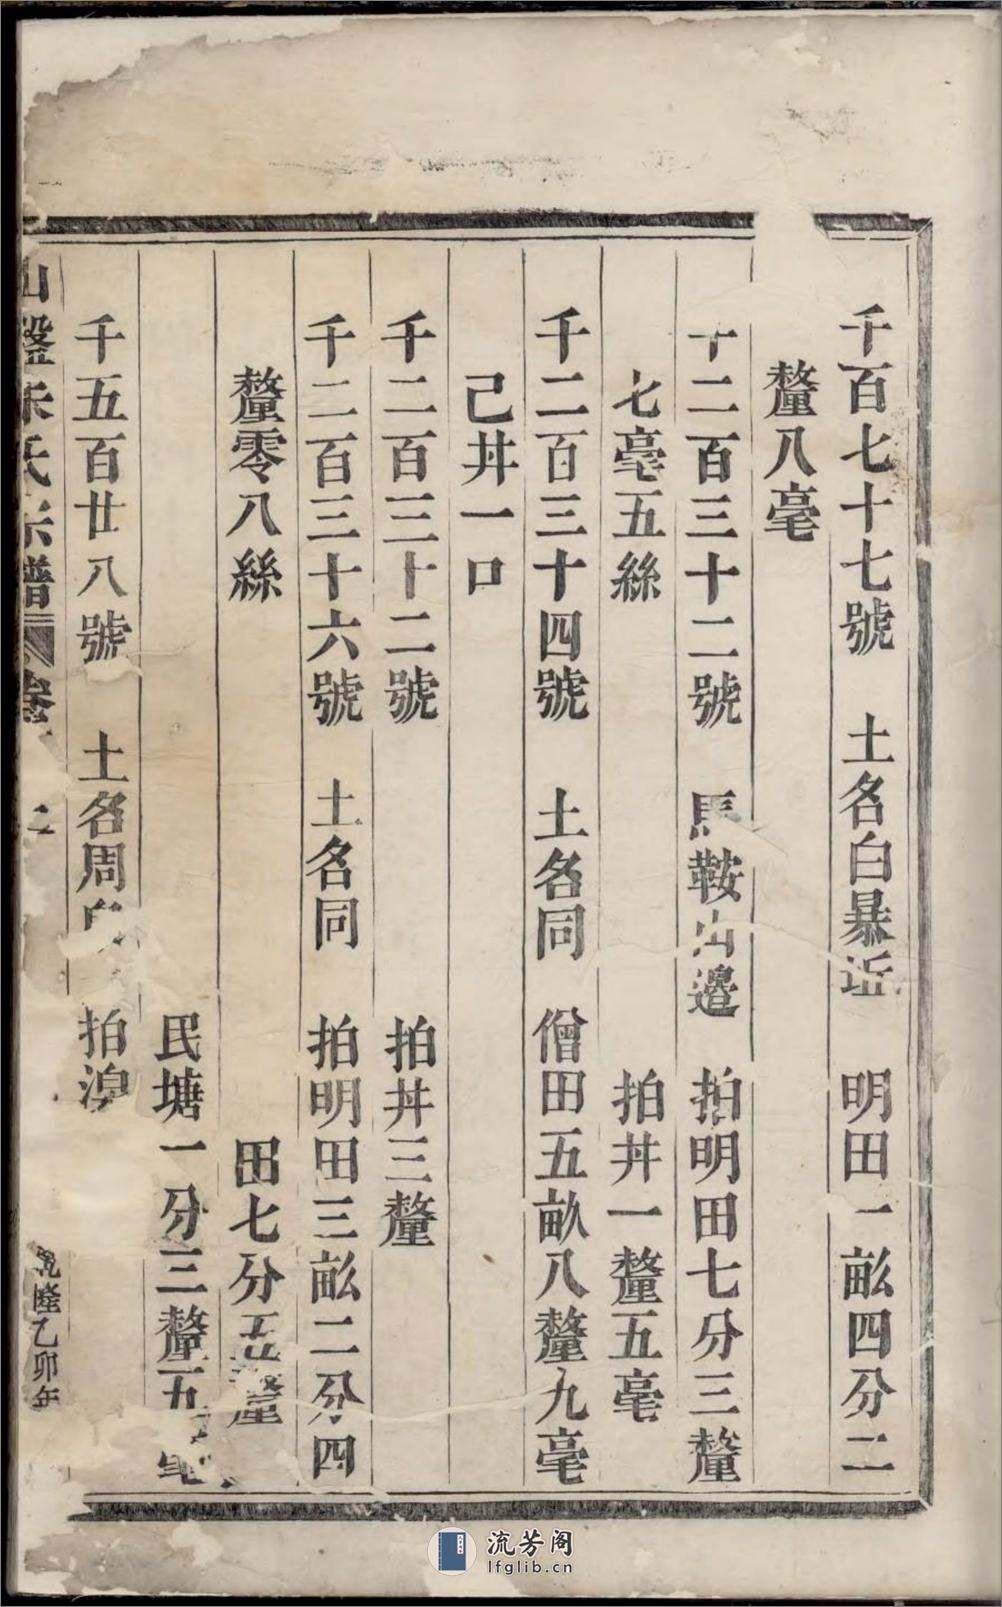 千百七十七號　土名白暴近　明田一畝四分二
釐八毫
十二百三十二號　馬鞍山邉　拍明田七分三釐
七毫五絲　拍丼一釐五毫
千二百三十四號　土名同　僧田五畝八釐九毫
己丼一口
千二百三十二號　拍丼三釐
千二百三十六號　土名同　拍明田三畝二分四
釐零八絲　田七分五釐
民塘一分三釐五毫
千五百廿八號　土名周　拍
山盤朱氏宗譜　卷　二　乾隆乙卯年
流芳阁
lfglib.cn